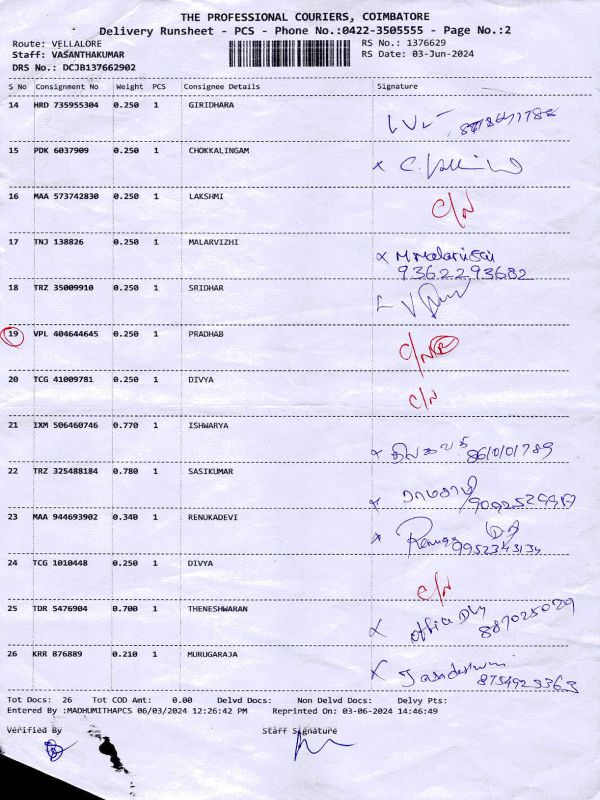 THE PROFESSIONAL COURIERS, COIMBATORE
Delivery Runsheet - PCS - Phone No.:0422-3505555 - Page No.:2
Route: VELLALORE RS No.: 1376629
Staff: VASANTHAKUMAR RS Date: 03-Jun-2024
DRS No.: DCJB137662902
S No Consignment No Weight PCS Consignee Details Signature
14 HRD 735955304 0.250 1 GIRIDHARA
15 PDK 6037909 0.250 1 CHOKKALINGAM
16 MAA 573742830 0.250 1 LAKSHMI C/N
17 TNJ 138826 0.250 1 MALARVIZHI x M.Malarvizhi
9362293682
18 TRZ 35009910 0.250 1 SRIDHAR
19 VPL 404644645 0.250 1 PRADHAB C/N R
20 TCG 41009781 0.250 1 DIVYA C/N
21 IXM 506460746 0.770 1 ISHWARYA
x திலகவதி 8610101789
22 TRZ 325488184 0.780 1 SASIKUMAR
x ராமசாமி
23 MAA 944693902 0.340 1 RENUKADEVI
x Renuga 9952343134
24 TCG 1010448 0.250 1 DIVYA C/N
25 TDR 5476904 0.700 1 THENESHWARAN
x office
26 KRR 876889 0.210 1 MURUGARAJA
x 8754923363
Tot Docs: 26 Tot COD Amt: 0.00 Delvd Docs: Non Delvd Docs: Delvy Pts:
Entered By :MADHUMITHAPCS 06/03/2024 12:26:42 PM Reprinted On: 03-06-2024 14:46:49
Verified By Staff Signature